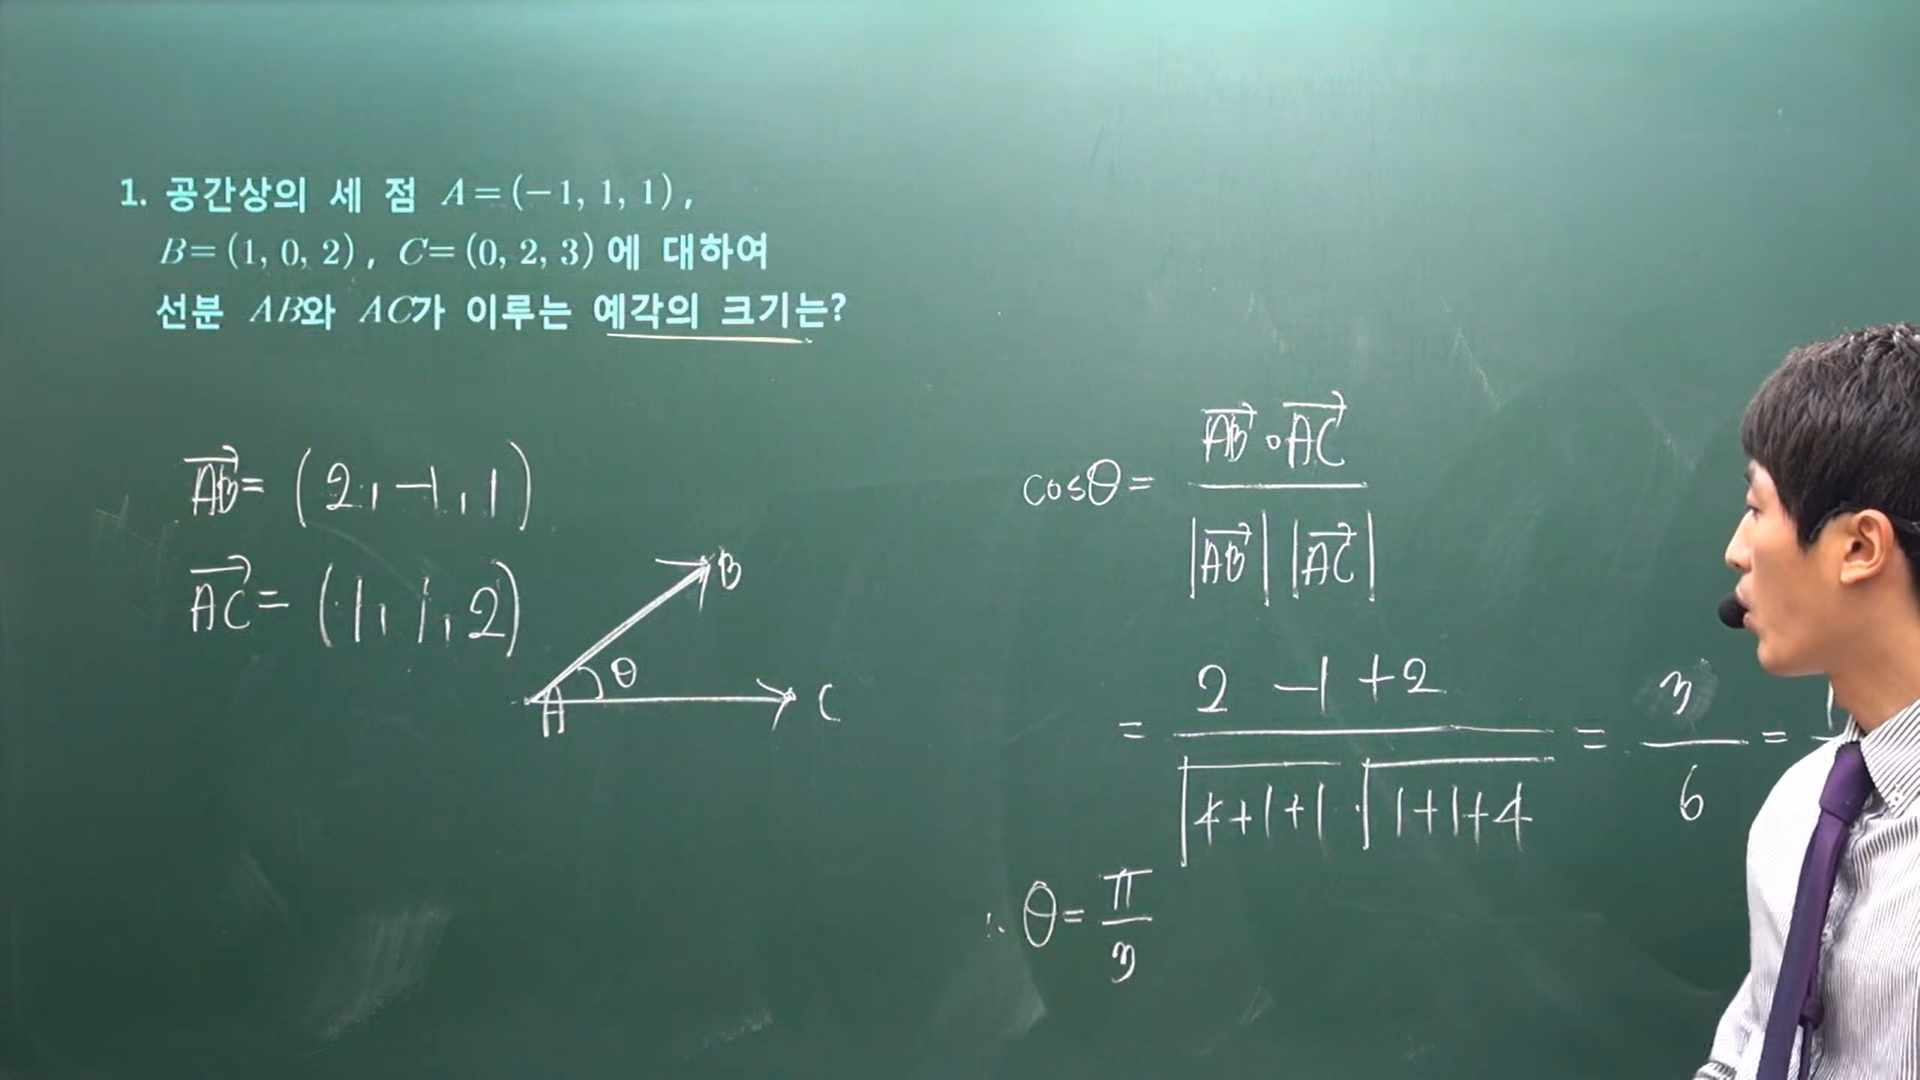 1. 공간상의 세 점 A=(−1, 1, 1),
B=(1, 0, 2), C=(0, 2, 3)에 대하여
선분 AB와 AC가 이루는 예각의 크기는?
AB→ = (2, −1, 1)
AC→ = (1, 1, 2)
B
θ
A
C
cosθ = AB→ ∘ AC→ / |AB→| |AC→|
= 2 −1 +2 / √4+1+1 · √1+1+4 = 3 / 6 =
∴ θ = π / 3